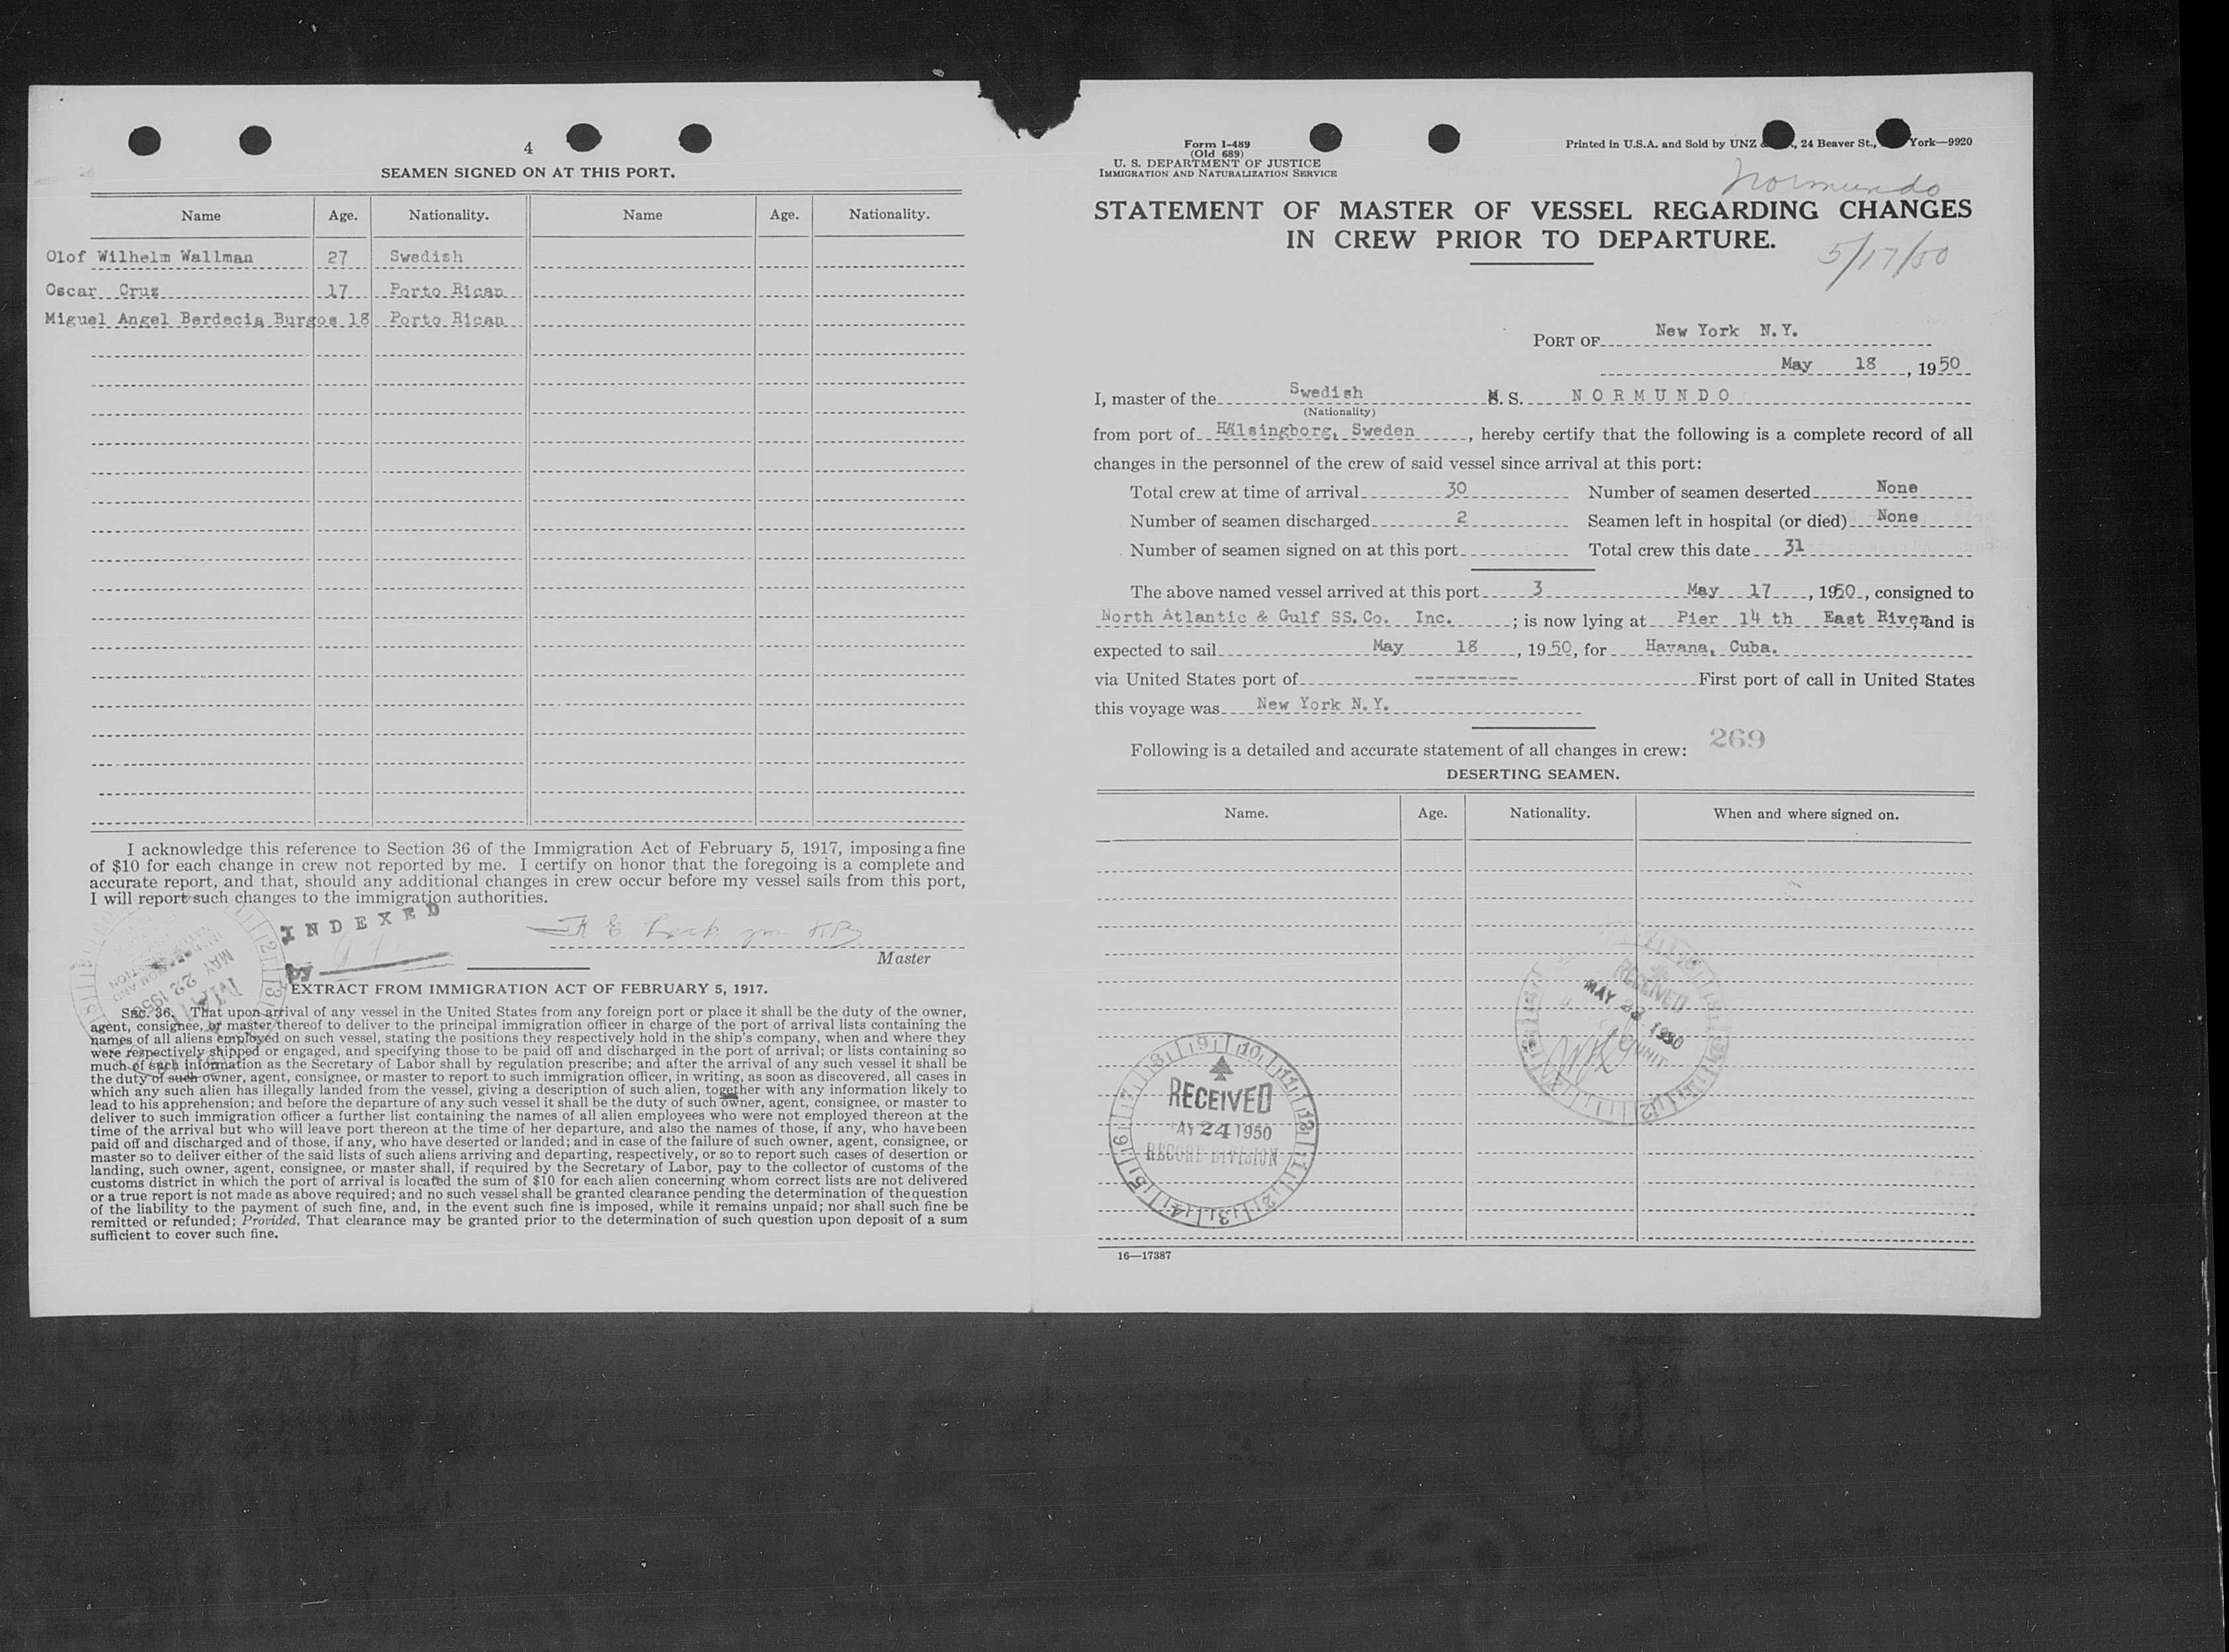 4
SEAMEN SIGNED ON AT THIS PORT.
Name Age. Nationality. Name Age. Nationality.
Olof Wilhelm Wallman 27 Swedish
Oscar Cruz 17 Porto Rican
Miguel Angel Berdecia Burgos 18 Porto Rican
I acknowledge this reference to Section 36 of the Immigration Act of February 5, 1917, imposing a fine
of $10 for each change in crew not reported by me. I certify on honor that the foregoing is a complete and
accurate report, and that, should any additional changes in crew occur before my vessel sails from this port,
I will report such changes to the immigration authorities.
INDEXED
by
Master
MAY 22 1950
EXTRACT FROM IMMIGRATION ACT OF FEBRUARY 5, 1917.
SEC. 36. That upon arrival of any vessel in the United States from any foreign port or place it shall be the duty of the owner,
agent, consignee, or master thereof to deliver to the principal immigration officer in charge of the port of arrival lists containing the
names of all aliens employed on such vessel, stating the positions they respectively hold in the ship's company, when and where they
were respectively shipped or engaged, and specifying those to be paid off and discharged in the port of arrival; or lists containing so
much of such information as the Secretary of Labor shall by regulation prescribe; and after the arrival of any such vessel it shall be
the duty of such owner, agent, consignee, or master to report to such immigration officer, in writing, as soon as discovered, all cases in
which any such alien has illegally landed from the vessel, giving a description of such alien, together with any information likely to
lead to his apprehension; and before the departure of any such vessel it shall be the duty of such owner, agent, consignee, or master to
deliver to such immigration officer a further list containing the names of all alien employees who were not employed thereon at the
time of the arrival but who will leave port thereon at the time of her departure, and also the names of those, if any, who have been
paid off and discharged and of those, if any, who have deserted or landed; and in case of the failure of such owner, agent, consignee, or
master so to deliver either of the said lists of such aliens arriving and departing, respectively, or so to report such cases of desertion or
landing, such owner, agent, consignee, or master shall, if required by the Secretary of Labor, pay to the collector of customs of the
customs district in which the port of arrival is located the sum of $10 for each alien concerning whom correct lists are not delivered
or a true report is not made as above required; and no such vessel shall be granted clearance pending the determination of the question
of the liability to the payment of such fine, and, in the event such fine is imposed, while it remains unpaid; nor shall such fine be
remitted or refunded; Provided, That clearance may be granted prior to the determination of such question upon deposit of a sum
sufficient to cover such fine.
Form I-489
(Old 689)
U. S. DEPARTMENT OF JUSTICE
IMMIGRATION AND NATURALIZATION SERVICE
Printed in U.S.A. and Sold by UNZ & , 24 Beaver St., York—9920
Normundo
STATEMENT OF MASTER OF VESSEL REGARDING CHANGES
IN CREW PRIOR TO DEPARTURE.
5/17/50
PORT OF New York N.Y.
May 18, 1950
I, master of the Swedish M. S. NORMUNDO
(Nationality)
from port of Hälsingborg, Sweden, hereby certify that the following is a complete record of all
changes in the personnel of the crew of said vessel since arrival at this port:
Total crew at time of arrival 30 Number of seamen deserted None
Number of seamen discharged 2 Seamen left in hospital (or died) None
Number of seamen signed on at this port Total crew this date 31
The above named vessel arrived at this port 3 May 17, 1950, consigned to
North Atlantic & Gulf SS.Co. Inc.; is now lying at Pier 14 th East River, and is
expected to sail May 18, 1950, for Havana, Cuba.
via United States port of ---------- First port of call in United States
this voyage was New York N.Y.
Following is a detailed and accurate statement of all changes in crew: 269
DESERTING SEAMEN.
Name. Age. Nationality. When and where signed on.
RECEIVED
MAY 23 1950
UNIT
RECEIVED
AY 24 1950
RECORD DIVISION
16—17387